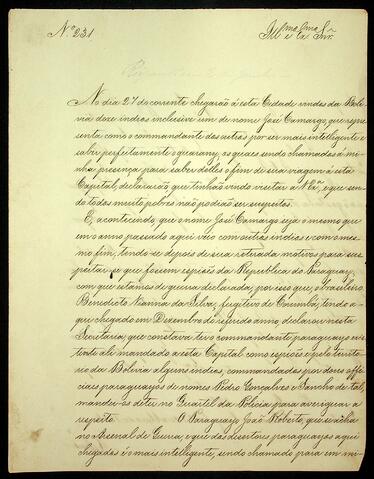 Nº 231
Illmo e Exmo Snr.
No dia 27 do corrente chegarão á esta Cidade vindos da Boli-
via doze indios inclusive um de nome José Camargo, que repre-
senta como o commandante dos outros por ser mais intelligente e
saber perfeitamente o guarany, os quaes sendo chamados á mi-
nha presença para saber delles o fim de sua viagem á esta
Capital, declararão que tinhão vindo visitar a V.Exª, e que sen-
do todos muito pobres não podião ser suspeitos.
E, acontecendo, que o nome José Camargo seja o mesmo que
em o anno passado aqui veio com outros indios e com o mes-
mo fim, tendo-se depois de sua retirada motivos para sus-
peitar-se que fossem espiões da Republica do Paraguay,
com que estamos de guerra declarada, por isso que, o brasileiro
Benedicto Vianna da Silva, fugitivo de Corumbá, tendo a-
qui chegado em Dezembro do referido anno, declarou nesta
Secretaria, que constava ter o commandante paraguayo exis-
tente ali mandado a esta Capital como espiões e pelo territo-
rio da Bolivia alguns indios, commandados por dous offi-
ciaes paraguayos de nomes Pedro Gonçalves e Sancho de tal,
mandei-os deter no Quartel da Policia para averiguar a
respeito. O Paraguayo João Roberto, que se acha
no Arsenal de Guerra, e que dos desertores paraguayos aqui
chegados é o mais intelligente, sendo chamado para em mi-